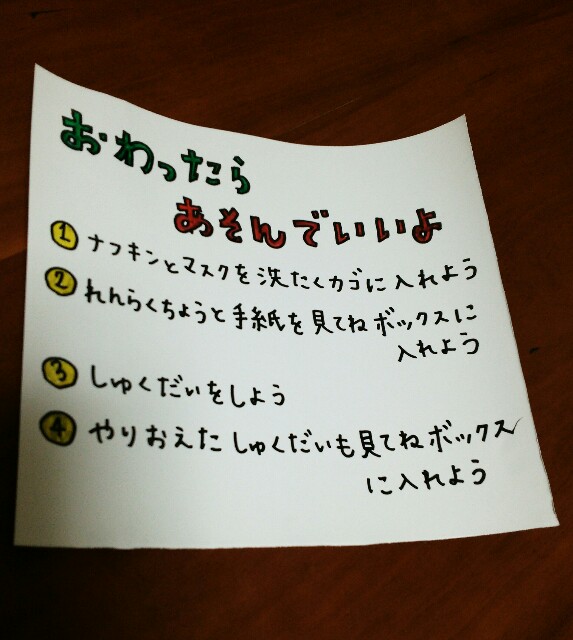 おわったら
あそんでいいよ
① ナフキンとマスクを洗たくカゴに入れよう
② れんらくちょうと手紙を見てねボックスに
入れよう
③ しゅくだいをしよう
④ やりおえたしゅくだいも見てねボックス
に入れよう